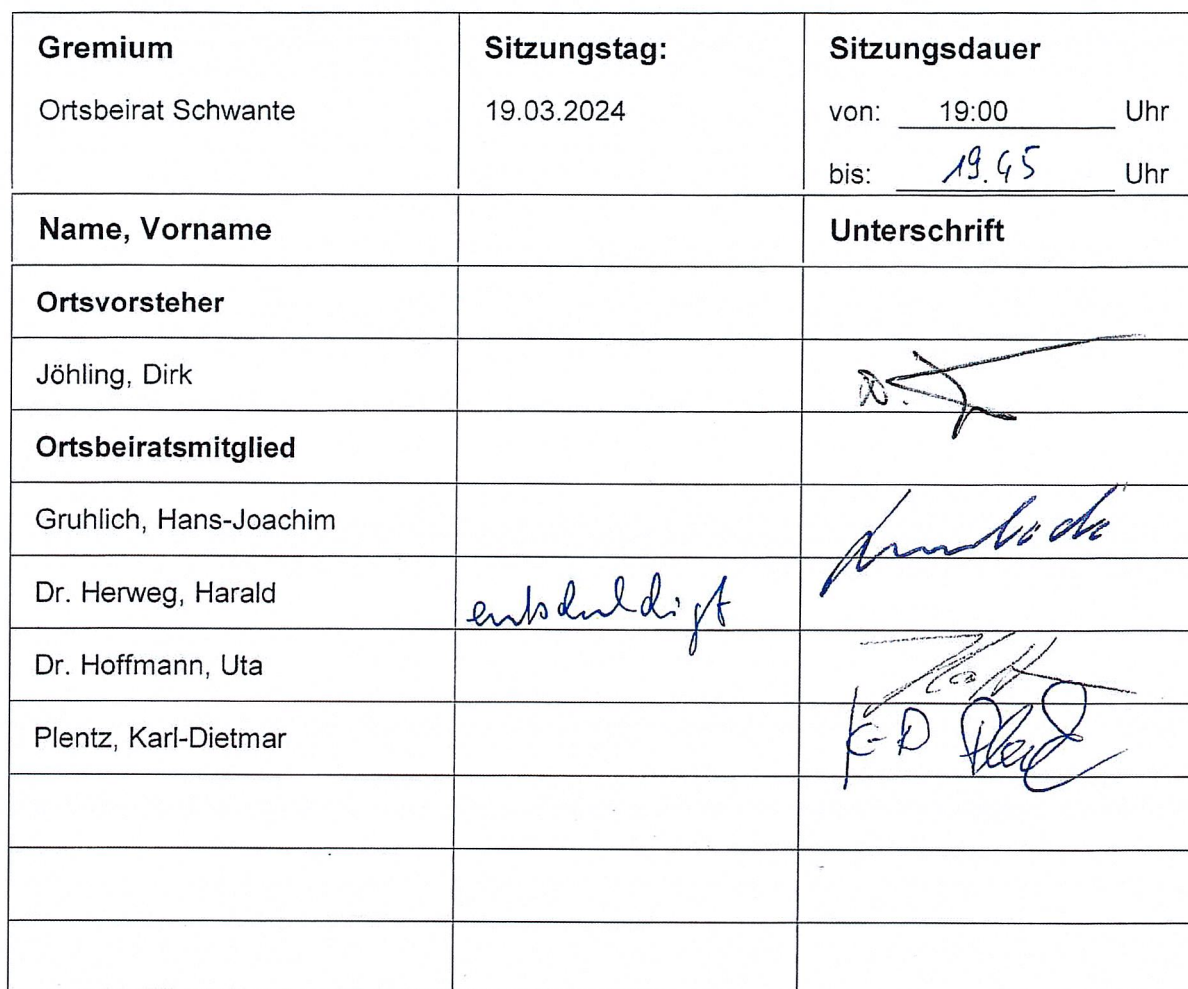 Gremium Sitzungstag: Sitzungsdauer
Ortsbeirat Schwante 19.03.2024 von: 19:00 Uhr
bis: 19.45 Uhr
Name, Vorname Unterschrift
Ortsvorsteher
Jöhling, Dirk D.
Ortsbeiratsmitglied
Gruhlich, Hans-Joachim
Dr. Herweg, Harald entschuldigt
Dr. Hoffmann, Uta
Plentz, Karl-Dietmar K-D Plentz